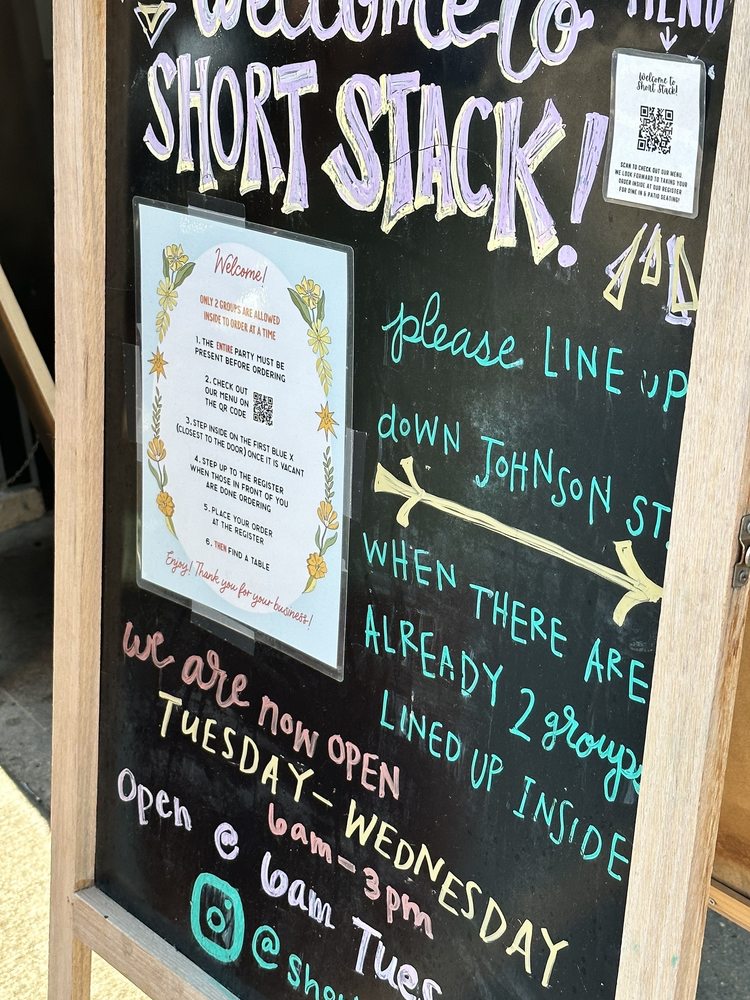 Welcome to
SHORT STACK!
MENU
Welcome to
Short Stack!
SCAN TO CHECK OUT OUR MENU.
WE LOOK FORWARD TO TAKING YOUR
ORDER INSIDE AT OUR REGISTER
FOR DINE IN & PATIO SEATING!
Welcome!
ONLY 2 GROUPS ARE ALLOWED
INSIDE TO ORDER AT A TIME
1. THE ENTIRE PARTY MUST BE
PRESENT BEFORE ORDERING
2. CHECK OUT
OUR MENU ON
THE QR CODE
3. STEP INSIDE ON THE FIRST BLUE X
(CLOSEST TO THE DOOR) ONCE IT IS VACANT
4. STEP UP TO THE REGISTER
WHEN THOSE IN FRONT OF YOU
ARE DONE ORDERING
5. PLACE YOUR ORDER
AT THE REGISTER
6. THEN FIND A TABLE
Enjoy! Thank you for your business!
please LINE UP
down JOHNSON ST.
WHEN THERE ARE
ALREADY 2 groups
LINED UP INSIDE
we are now OPEN
TUESDAY - WEDNESDAY
6am - 3pm
Open @ 6am Tues